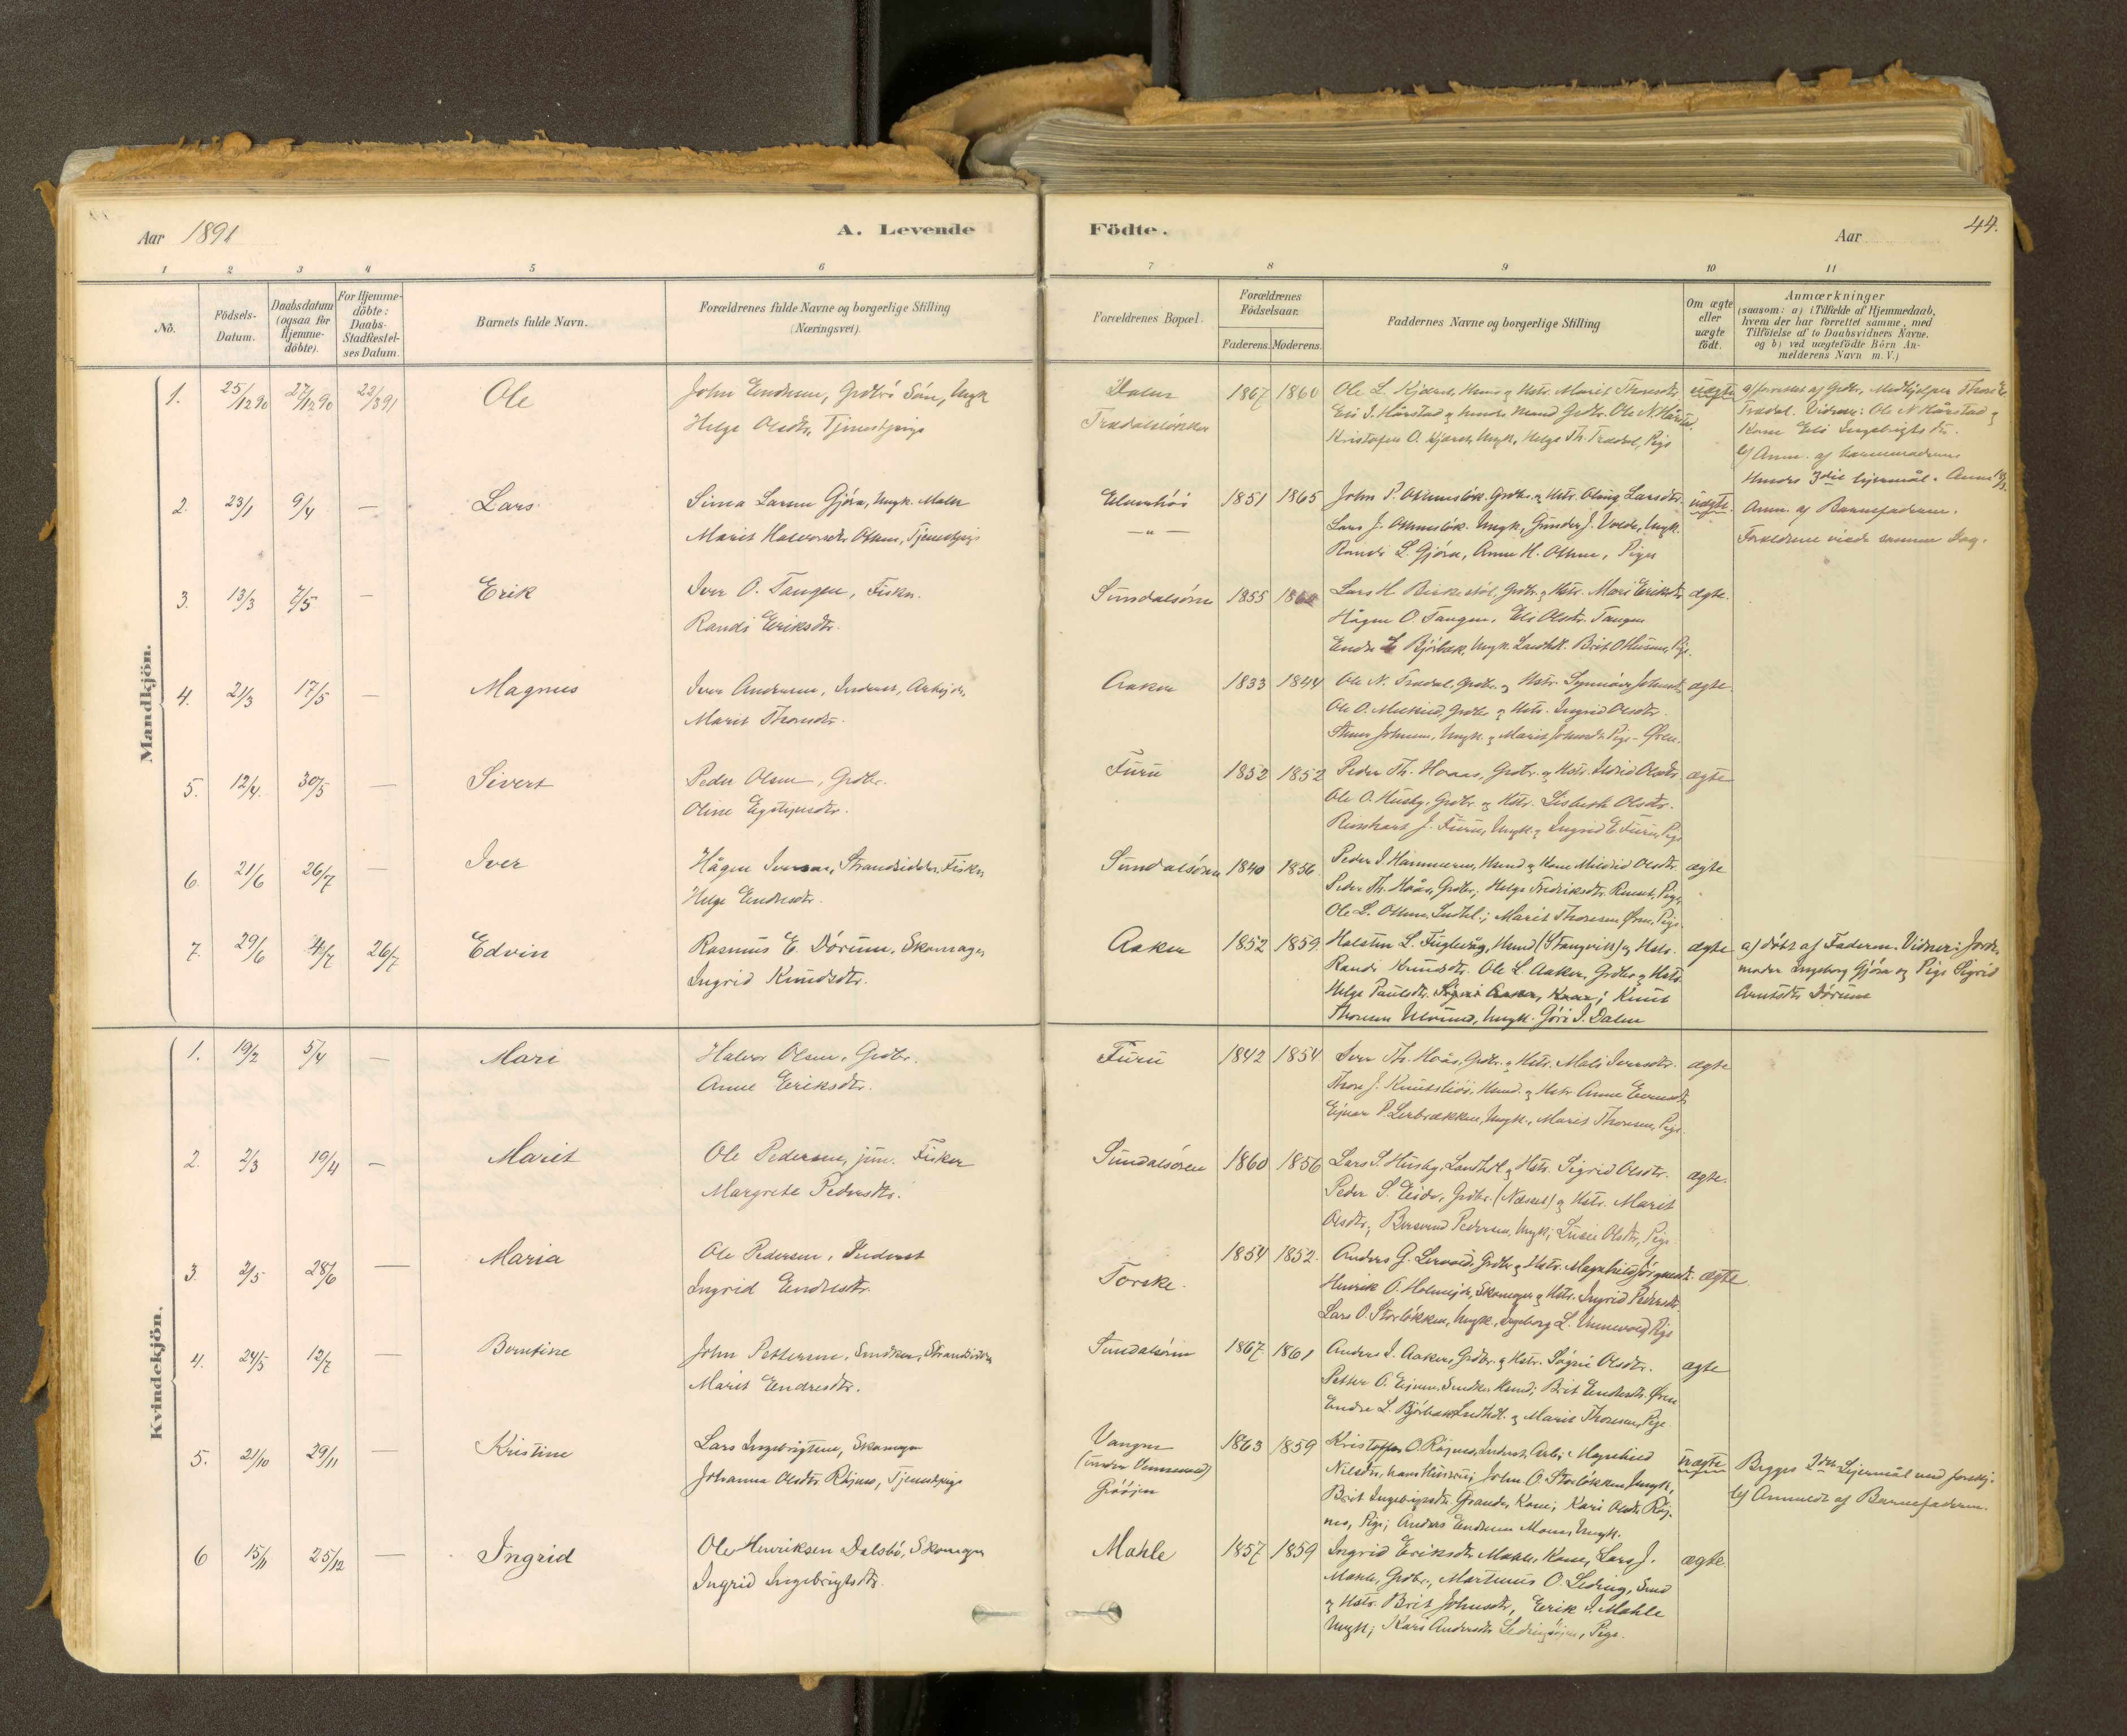 Aar 1891
A. Levende
Födte.
Aar
44.
1 2 3 4 5 6 7 8 9 10 11
No.
Födsels-
Datum.
Daabsdatum
(ogsaa for
Hjemme-
döbte).
For Hjemme-
döbte:
Daabs-
Stadfæstel-
ses Datum.
Barnets fulde Navn.
Forældrenes fulde Navne og borgerlige Stilling
(Næringsvei).
Forældrenes Bopæl.
Forældrenes
Födselsaar.
Faderens. Moderens.
Faddernes Navne og borgerlige Stilling
Om ægte
eller
uægte
födt.
Anmærkninger
(saasom: a) i Tilfælde af Hjemmedaab,
hvem der har forrettet samme, med
Tilföielse af to Daabsvidners Navne.
og b) ved uægtefödte Börn An-
melderens Navn m. V.)
Mandkjön.
1. 25/12 90 27/12 90 22/3 91 Ole
John Endresen, Grdbrs Sön, Ungk
Helge Olsdtr, Tjenestpige
Dalen
Trædalslökken
1867 1860
Ole L. Hjorth, Husm. og Hstr. Marit Thoresdtr.
Eli I. Hårstad og hendes Mand Grdbr. Ole N Hårstad.
Kristofer O. Hjorth, Ungk, Helge Th. Trædal, Pige
uægte
a) forrettet af Grdbr. Medhjelper Thor E
Trædal. Vidner: Ole N Hårstad og
Kone Eli Ingebrigtsdtr.
b) Anm. af barnemoderen
Hendes 3die leiermål.
2. 23/1 9/4 — Lars
Sivert Larsen Gjöra, Ungk. Maler
Marit Halvorsdtr Othem, Tjenestpige
Elverhöi
— " —
1851 1865
John P. Othemslök. Grdbr. og Hstr. Oling Larsdtr.
Lars J. Othemslök. Ungk, Gunder J. Volde, Ungk.
Randi L. Gjöra, Anne H. Othem, Piger
uægte.
Anm. af Barnefaderen.
Forældrene viede samme Dag.
3. 13/3 7/5 — Erik
Iver O. Tangen, Fisker.
Randi Eriksdtr.
Sundalsören 1855
Lars H. Birkestöl, Grdbr. og Hstr. Mari Eriksdtr
Hågen O Tangen, Eli Olsdtr. Tangen
Endre L Björbæk, Ungk. Landhdl. Brit O Husum, Pige.
ægte.
4. 21/3 17/5 — Magnus
Iver Andersen, Inderst, Arbejdr.
Marit Thoresdtr.
Aaker 1833 1844
Ole N. Trædal, Grdbr. og Hstr. Synnöve Johnsdtr
Ole O. Melkild, Grdbr og Hstr. Ingrid Olsdtr.
Johnsen, Ungk. og Marit Johnsdtr Pige - Ören.
ægte.
5. 12/4. 30/5 — Sivert
Peder Olsen, Grdbr.
Oline Eystensdtr.
Furu 1852 1852
Peder Th. Hoaas, Grdbr. og Hstr. Ildrid Olsdtr.
Ole O. Husby, Grdbr. og Hstr. Lisbeth Olsdtr.
Reinhart J. Furu, Ungk og Ingrid E. Furu, Pige
ægte
6. 21/6 26/7 — Iver
Hågen Iversen, Strandsidder, Fisker
Helge Endresdtr.
Sundalsören 1840 1856.
Peder I. Hammeren, Husmd og Kone Mildrid Olsdtr.
Peder Th. Hååes, Grdbr.; Helge Fredriksdtr. Pige,
Ole L. Othem, Landhdl.; Marit Thoresen Ören, Pige
ægte
7. 29/6 4/7 26/7 Edvin
Rasmus E. Dörum, Skomager
Ingrid Knudsdtr.
Aaker 1852 1859
Halsten L. Fuglevåg, Husmd (Stangvik) og Hstr.
Randi Knudsdtr. Ole L Aaker, Grdbr og Hstr
Helge Paulsdtr. Knut
Thoresen Ulvund, Ungk. Göri I. Dalen
ægte
a) döbt af Faderen. Vidner: Jorde-
moder Ingeborg Gjöra og Pige Sigrid
Arntsdtr Dörum
Kvindekjön.
1. 19/2 5/4 — Mari
Halvor Olsen, Grdbr.
Anne Eriksdtr.
Furu 1842 1854
Iver Th. Hoås, Grdbr. og Hstr. Mali Iversdtr.
Thore J. Knutsliöi, Husmd. og Hstr Anne Evensdtr
Ejnar P. Lerbrækken, Ungk., Marit Thoresen, Pige.
ægte
2. 2/3 19/4 — Marit
Ole Pedersen, jun. Fisker
Margrete Pedersdtr.
Sundalsören 1860 1856
Lars S. Husby, Landhdl og Hstr. Sigrid Olsdtr.
Peder S. Eide, Grdbr. (Nesset) og Hstr. Marit
Olsdtr; Bersvend Pedersen, Ungk; Lusie Olsdtr, Pige
ægte.
3. 2/5 28/6 — Maria
Ole Pedersen, Inderst
Ingrid Endresdtr.
Torske. 1854 1852.
Anders G. Lervold, Grdbr og Hstr. Magnhild
Henrik O. Skomager og Hstr. Ingrid Pedersdtr.
Lars O. Storlökken, Ungk., Ingeborg L. Unnevold, Pige
ægte.
4. 24/5 12/7 — Berntine
John Pettersen, Snedker, Strandsidder
Marit Endresdtr.
Sundalsören 1867 1861
Anders I. Aaker, Grdbr. og Hstr. Sögni Olsdtr.
Petter O. Snedker Husmd; Brit Endresdtr. Ören
Endre L. Björbæk Landhdl. og Marit Thoresen, Pige
ægte
5. 21/10 29/11 — Kristine
Lars Ingebrigtsen, Skomager
Johanna Olsdtr Röjnes, Tjenestpige
Vangen
(under Vennevold)
Grööjen
1863 1859
Kristoffer O. Röjnes, Inderst, Arb; Magnhild
Nilsdtr, hans Hustru; John O Storlökken, Ungk,
Brit Ingebrigtsdtr. Grande, Kone; Kari Olsdtr Röj-
nes, Pige; Anders Endresen Moen, Ungk.
uægte
Begges 2det Leiermål med forskj.
b) Anmeldt af Barnefaderen.
6 15/11 25/12 — Ingrid
Ole Henriksen Dalsbö, Skomager
Ingrid Ingebrigtsdtr.
Mahle 1857 1859
Ingrid Eriksdtr Mahle, Kone, Lars J.
Mahle, Grdbr., Martinus O. Ledring, Smed
og Hstr. Brit Johnsdtr, Erik I. Mahle
Ungk; Kari Andersdtr Pige.
ægte.